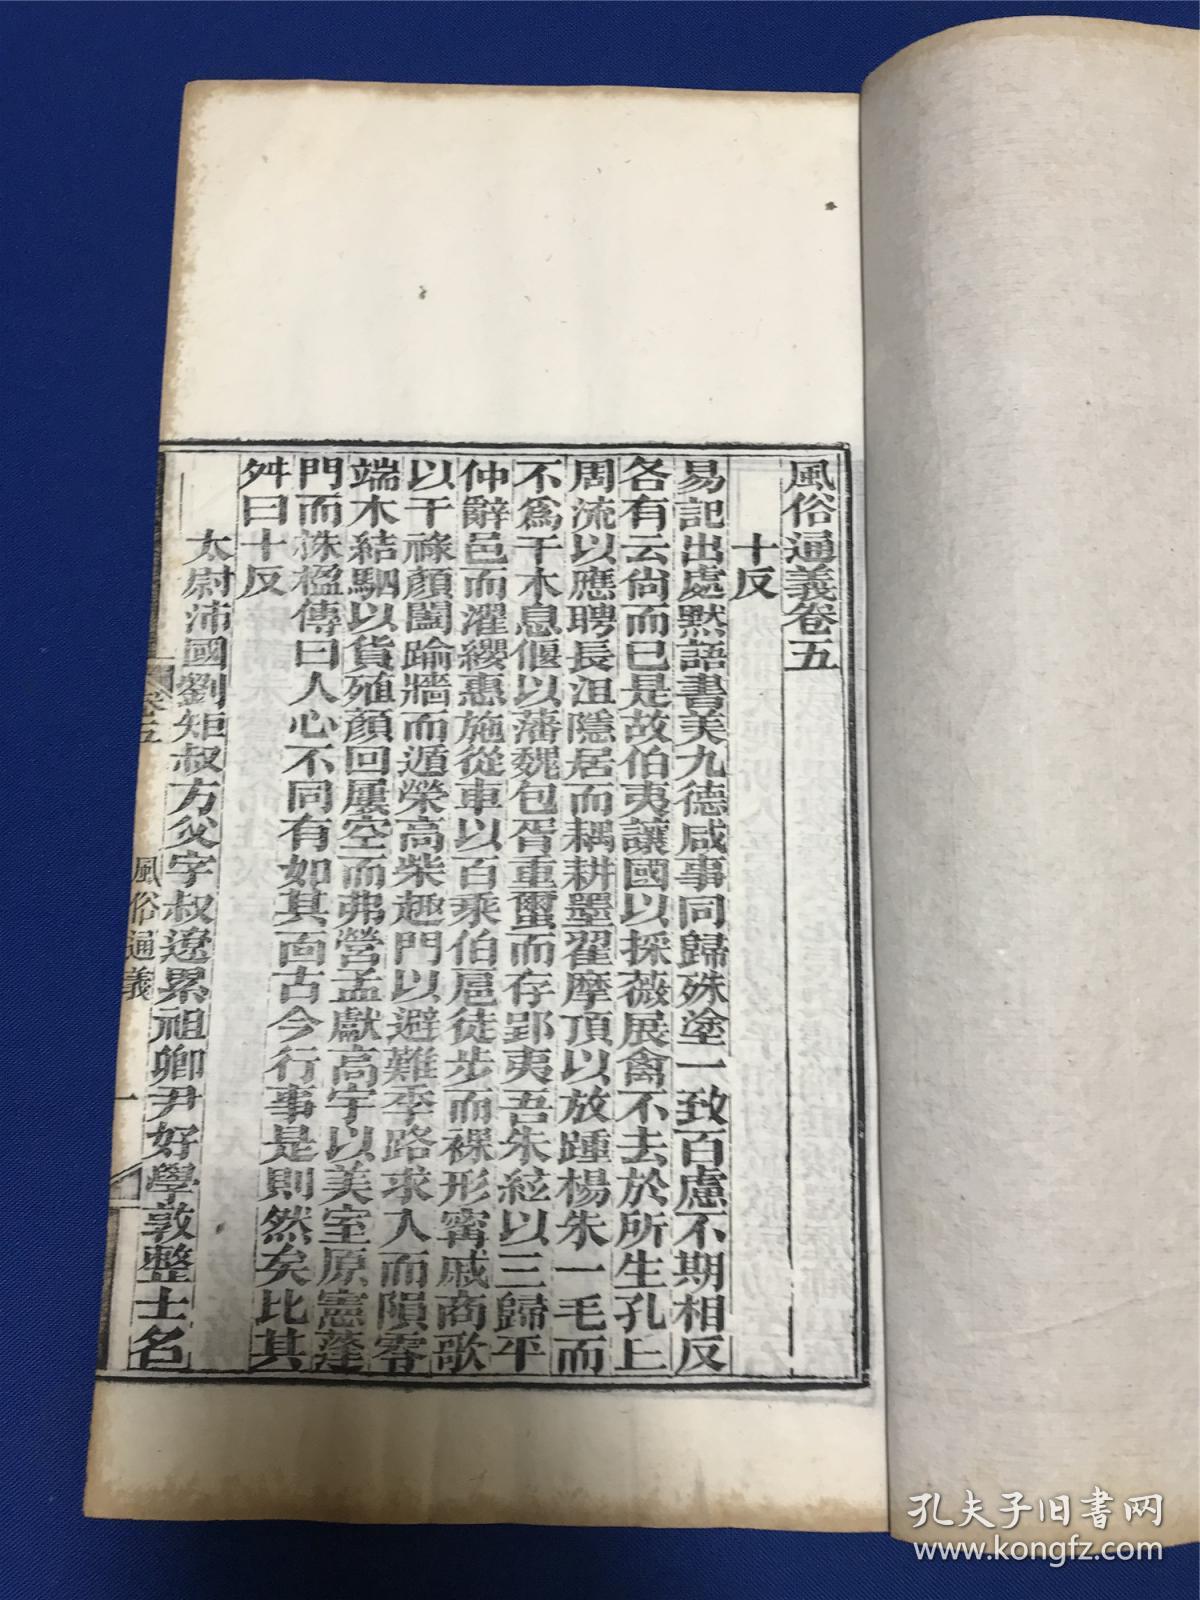 風俗通義卷五
十反
易記出處默語書美九德咸事同歸殊塗一致百慮不期相反
各有云尙而已是故伯夷讓國以採薇展禽不去於所生孔上
周流以應聘長沮隱居而耦耕墨翟摩頂以放踵楊朱一毛而
不爲干木息偃以藩魏包胥重蠒而存郢夷吾朱絃以三歸平
仲辭邑而濯纓惠施從車以百乘伯扈徒步而裸形甯戚商歌
以干祿顏闔踰牆而遁榮高柴趣門以避難季路求入而隕零
端木結駟以貨殖顏回屢空而弗營孟獻高宇以美室原憲蓬
門而株楹傳曰人心不同有如其面古今行事是則然矣比其
舛曰十反
太尉沛國劉矩叔方父字叔遼累祖卿尹好學敦整士名
卷五
風俗通義
一
孔夫子旧書网
www.kongfz.com